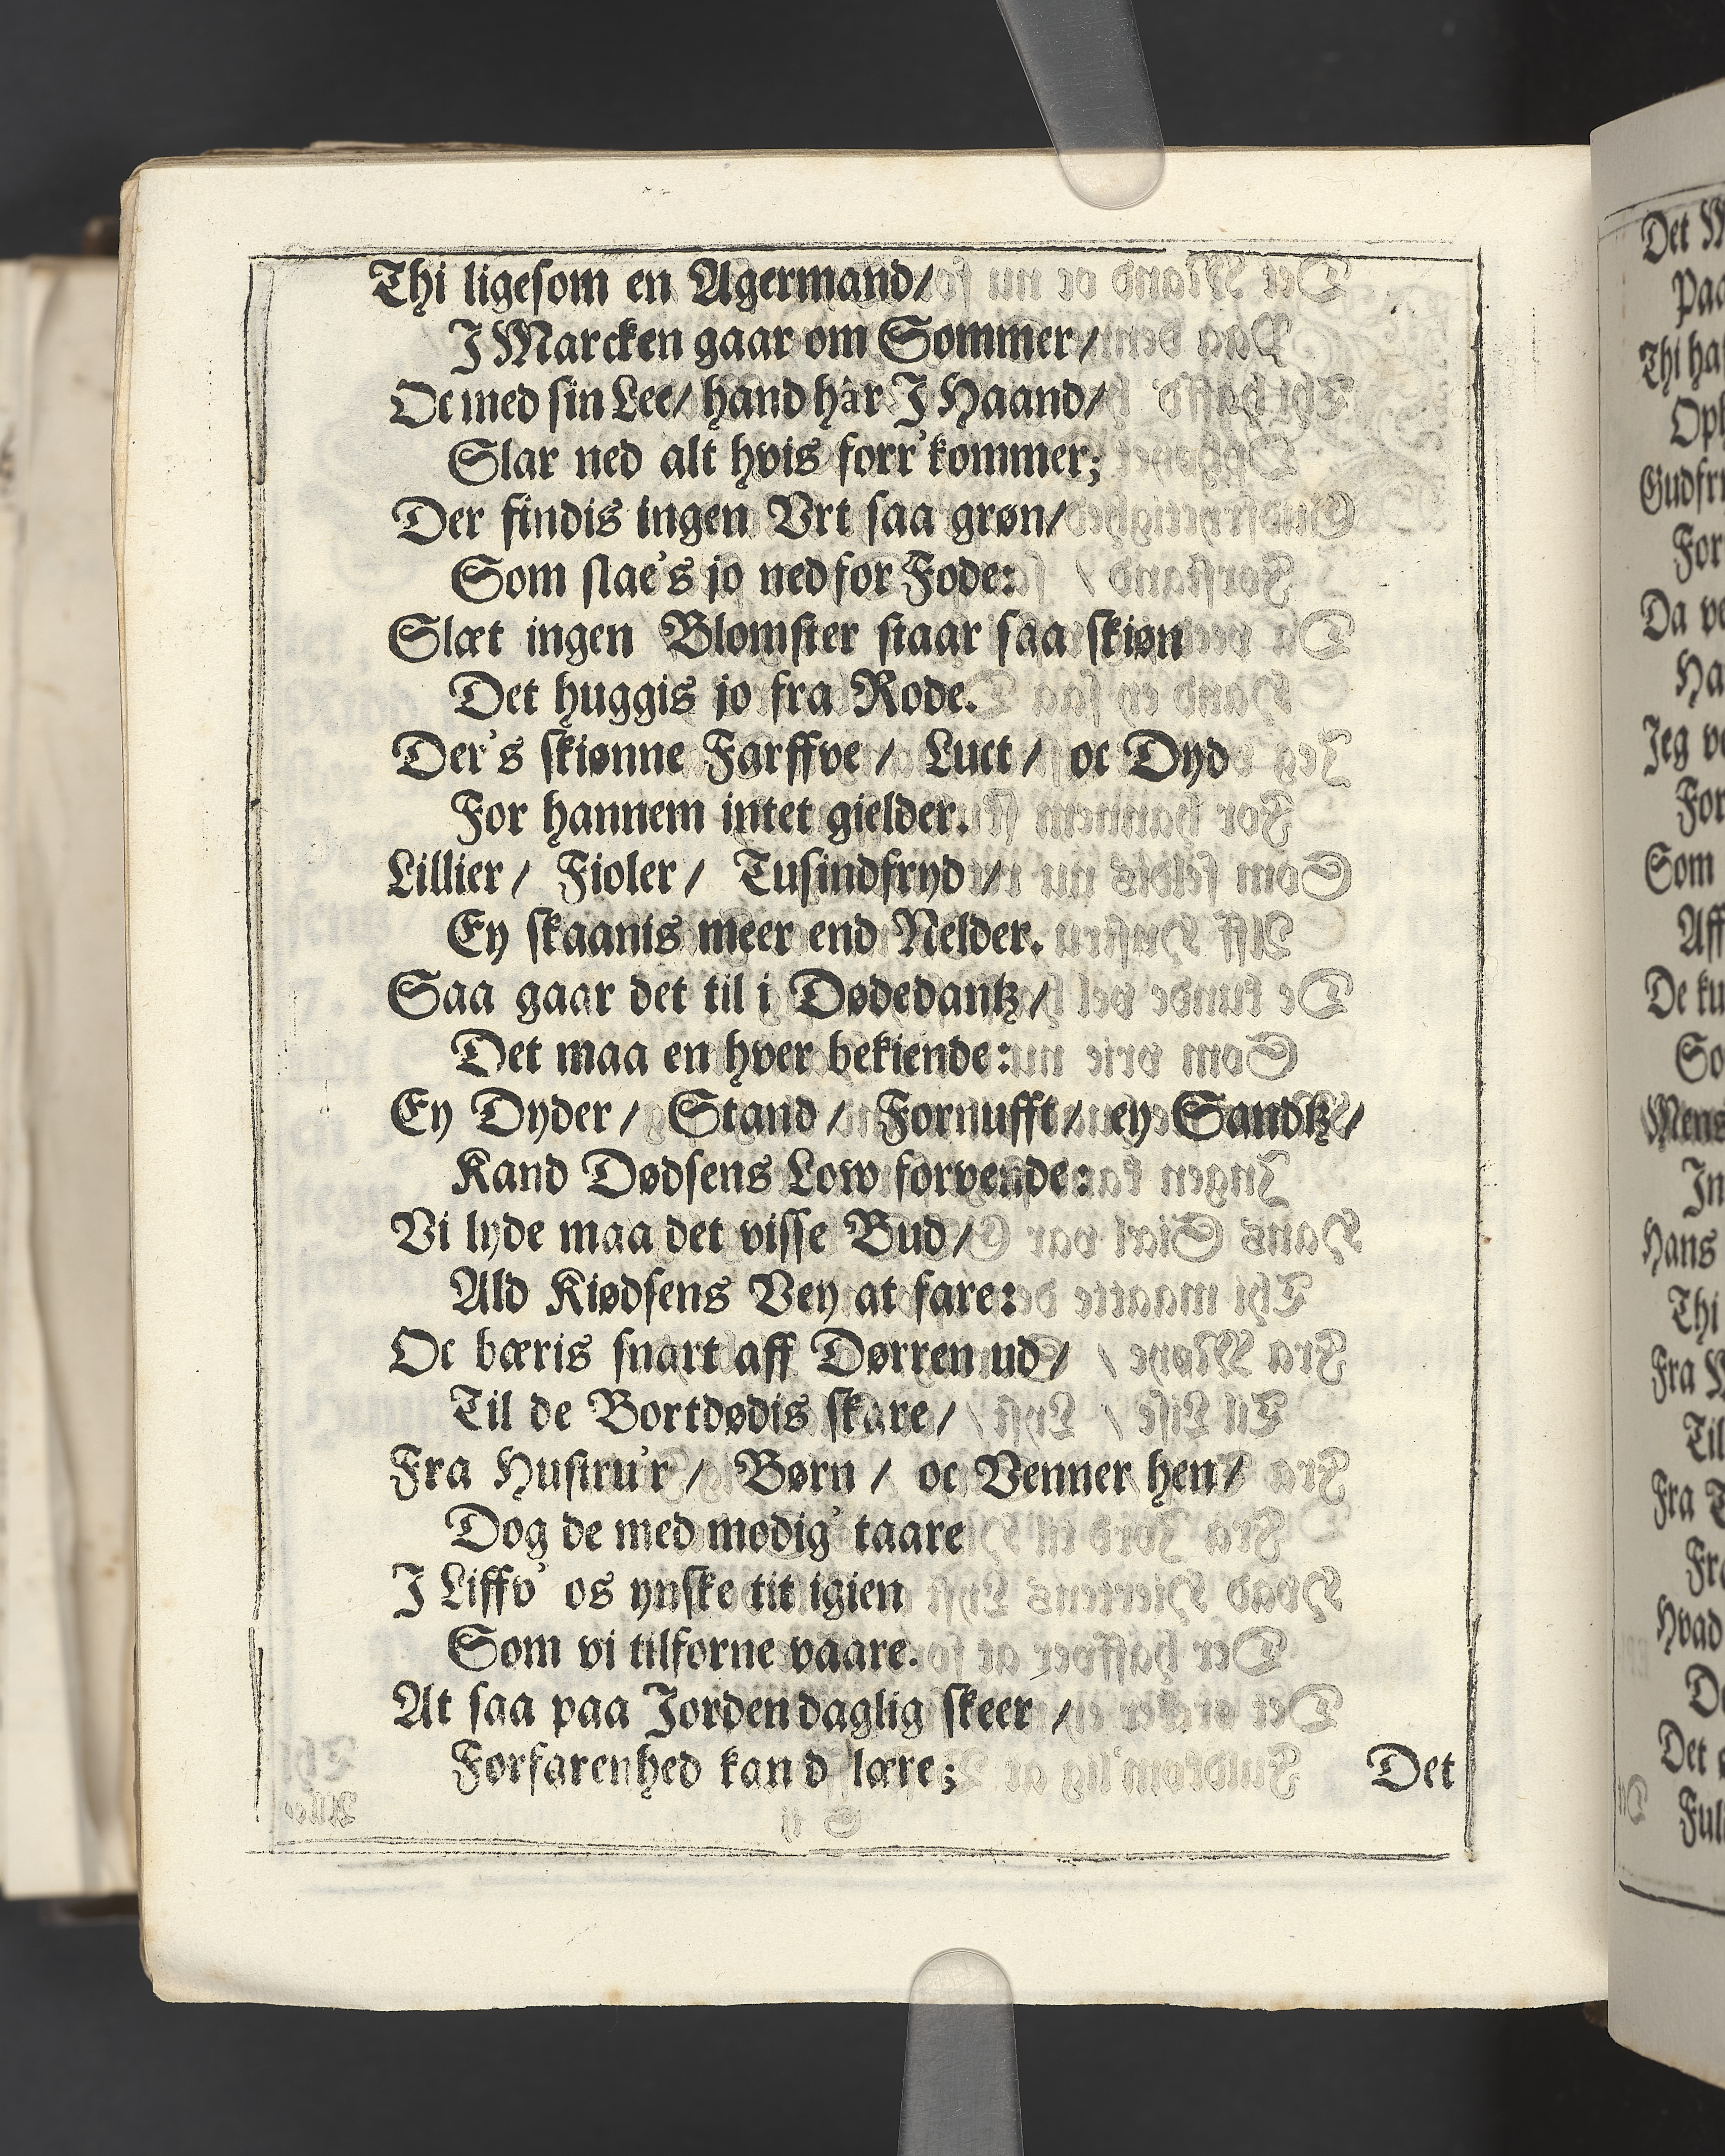 Thi ligesom en Agermand/
J Marcken gaar om Sommer/
Oc med sin Lee/ hand har J Haand/
Slar ned alt hvis forr' kommer;
Der findis ingen Vrt saa grøn/
Som slae's jo ned for Fode:
Slæt ingen Blomster staar saa skiøn
Det huggis jo fra Rode.
Der's skiønne Farffve/ Luct/ oc Dyd
For hannem intet gielder.
Lillier/ Fioler/ Tusindfryd/
Ey skaanis meer end Nelder.
Saa gaar det til i Dødedantz/
Det maa en hver bekiende:
Ey Dyder/ Stand/ Fornufft/ ey Sandtz/
Kand Dødsens Low forvende:
Vi lyde maa det visse Bud/
Ald Kiødsens Vey at fare:
Oc bæris snart aff Dørren ud/
Til de Bortdødis skare/
Fra Hustru'r/ Børn/ oc Venner hen/
Dog de med modig' taare
J Liffv' os ynske tit igien
Som vi tilforne vaare.
At saa paa Jorden daglig skeer/
Forfarenhed kand lære;
Det